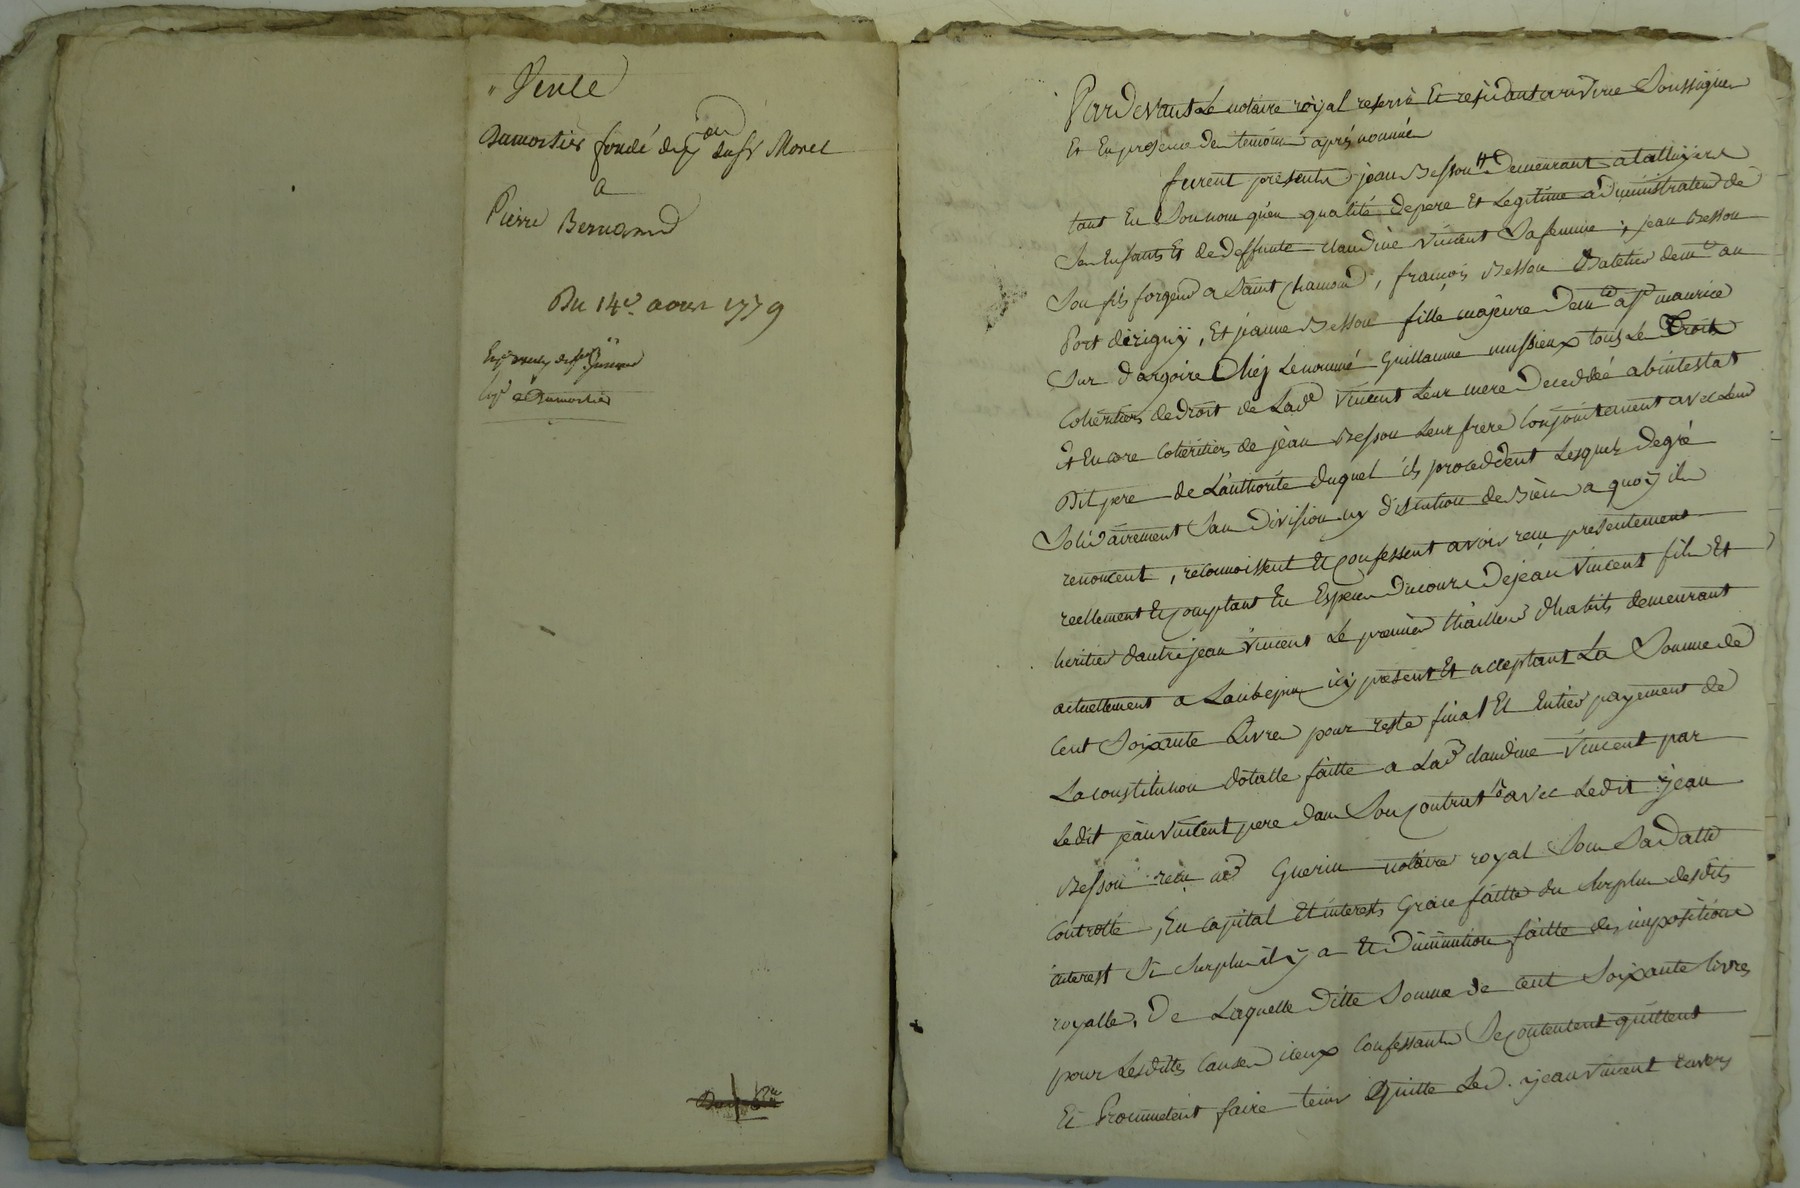 Vente
Dumortier fondé de pon du sr Morel
a
Pierre Bernard
Du 14e. aoust 1779
Par Devant Le notaire royal reservé Et residant a Soussigné
Et En presence des temoins après nommés
furent presents jean Besson demeurant a tattuyere
tant En Son nom qu'en qualité de pere Et Legitime administrateur de
Ses Enfants Et de deffunte claudine vincent Sa femme ; jean Besson
Son fils forgeur a Saint Chamond, françois Besson Batelier demt au
Port derigny, Et jeanne Besson fille majeure demte a st maurice
Sur dargoire Chéz Le nommé Guillaume mussieux tous Les Trois
Coheritiers de droit de Lade vincent Leur mere decedéé abintestat
Et Encore Coheritiers de jean Besson Leur frere Conjointement avec Leur
Dit pere de L'authorité duquel ils procedent Lesquels de gré
Solidairement Sans division ny discution de Biens a quoy ils
renoncent, reconnoissent Et Confessent avoir reçu presentement
reellement Et Comptant En Especes du cours De jean vincent fils Et
heritier d'autre jean vincent Le premier thailleur d'habits demeurant
actuellement a Laubepin icy present Et acceptant La Somme de
Cent Soixante Livres pour reste final Et Entier payement de
La constitution dotalle faitte a Lad claudine vincent par
Ledit jean vincent pere dans Son Contrat avec Ledit jean
Besson reçu Guerin notaire royal Sous Sa datte
Controllé, En Capital Et interests Grace faitte du Surplus desdits
interest Si Surplus il y a Et Diminution faitte des impositions
royalles, De Laquelle ditte Somme de cent Soixante livres
pour Lesdittes Causes iceux Confessants Se Contentent quittent
Et Prommettent faire tenir Quitte Led. jean vincent Envers